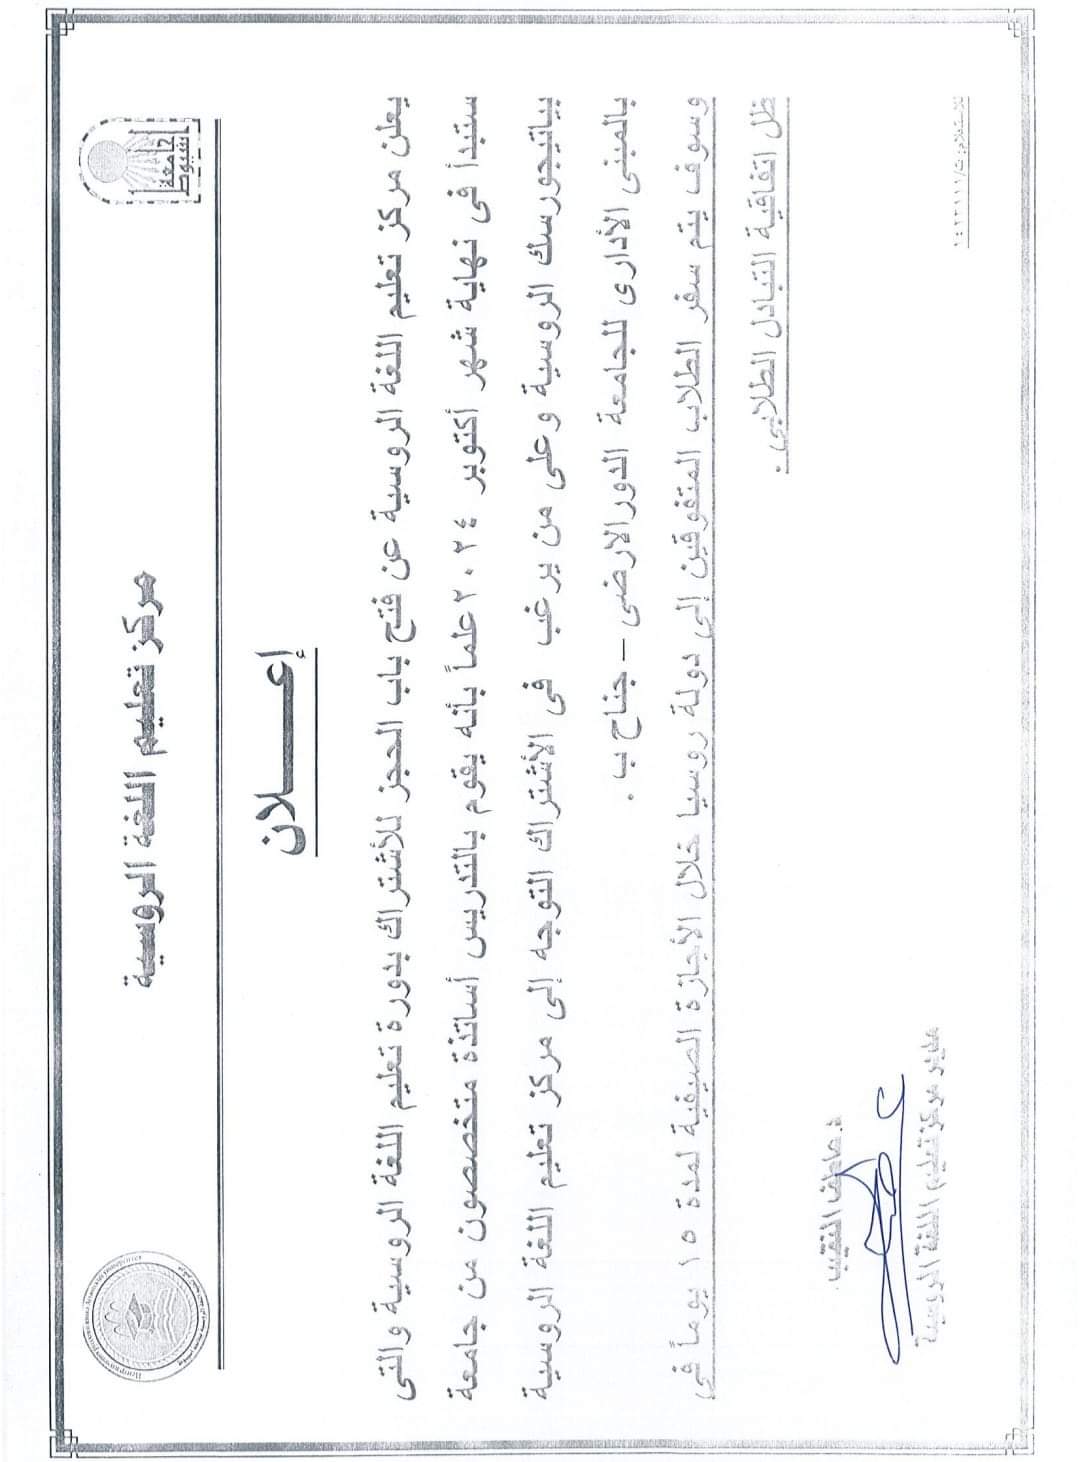 جامعة
أسيوط
مركز تعليم اللغة الروسية
إعـــلان
يعلن مركز تعليم اللغة الروسية عن فتح باب الحجز للأشتراك بدورة تعليم اللغة الروسية والتى
ستبدأ فى نهاية شهر أكتوبر ٢٠٢٤ علماً بأنه يقوم بالتدريس أساتذة متخصصون من جامعة
بياتيجورسك الروسية وعلى من يرغب فى الأشتراك التوجه إلى مركز تعليم اللغة الروسية
بالمبنى الأدارى للجامعة الدور الارضى – جناح ب .
وسوف يتم سفر الطلاب المتفوقين إلى دولة روسيا خلال الأجازة الصيفية لمدة ١٥ يوماً فى
ظل اتفاقية التبادل الطلابى .
د.عاطف النقيب
مدير مركز تعليم اللغة الروسية